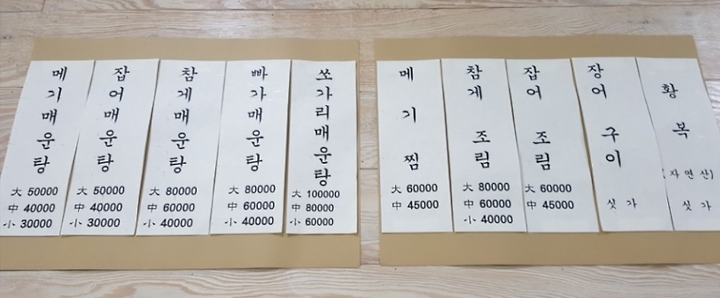 메기매운탕
大 50000
中 40000
小 30000
잡어매운탕
大 50000
中 40000
小 30000
참게매운탕
大 80000
中 60000
小 40000
빠가매운탕
大 80000
中 60000
小 40000
쏘가리매운탕
大 100000
中 80000
小 60000
메기찜
大 60000
中 45000
참게 조림
大 80000
中 60000
小 40000
잡어 조림
大 60000
中 45000
장어 구이
싯가
황복
(자연산)
싯가